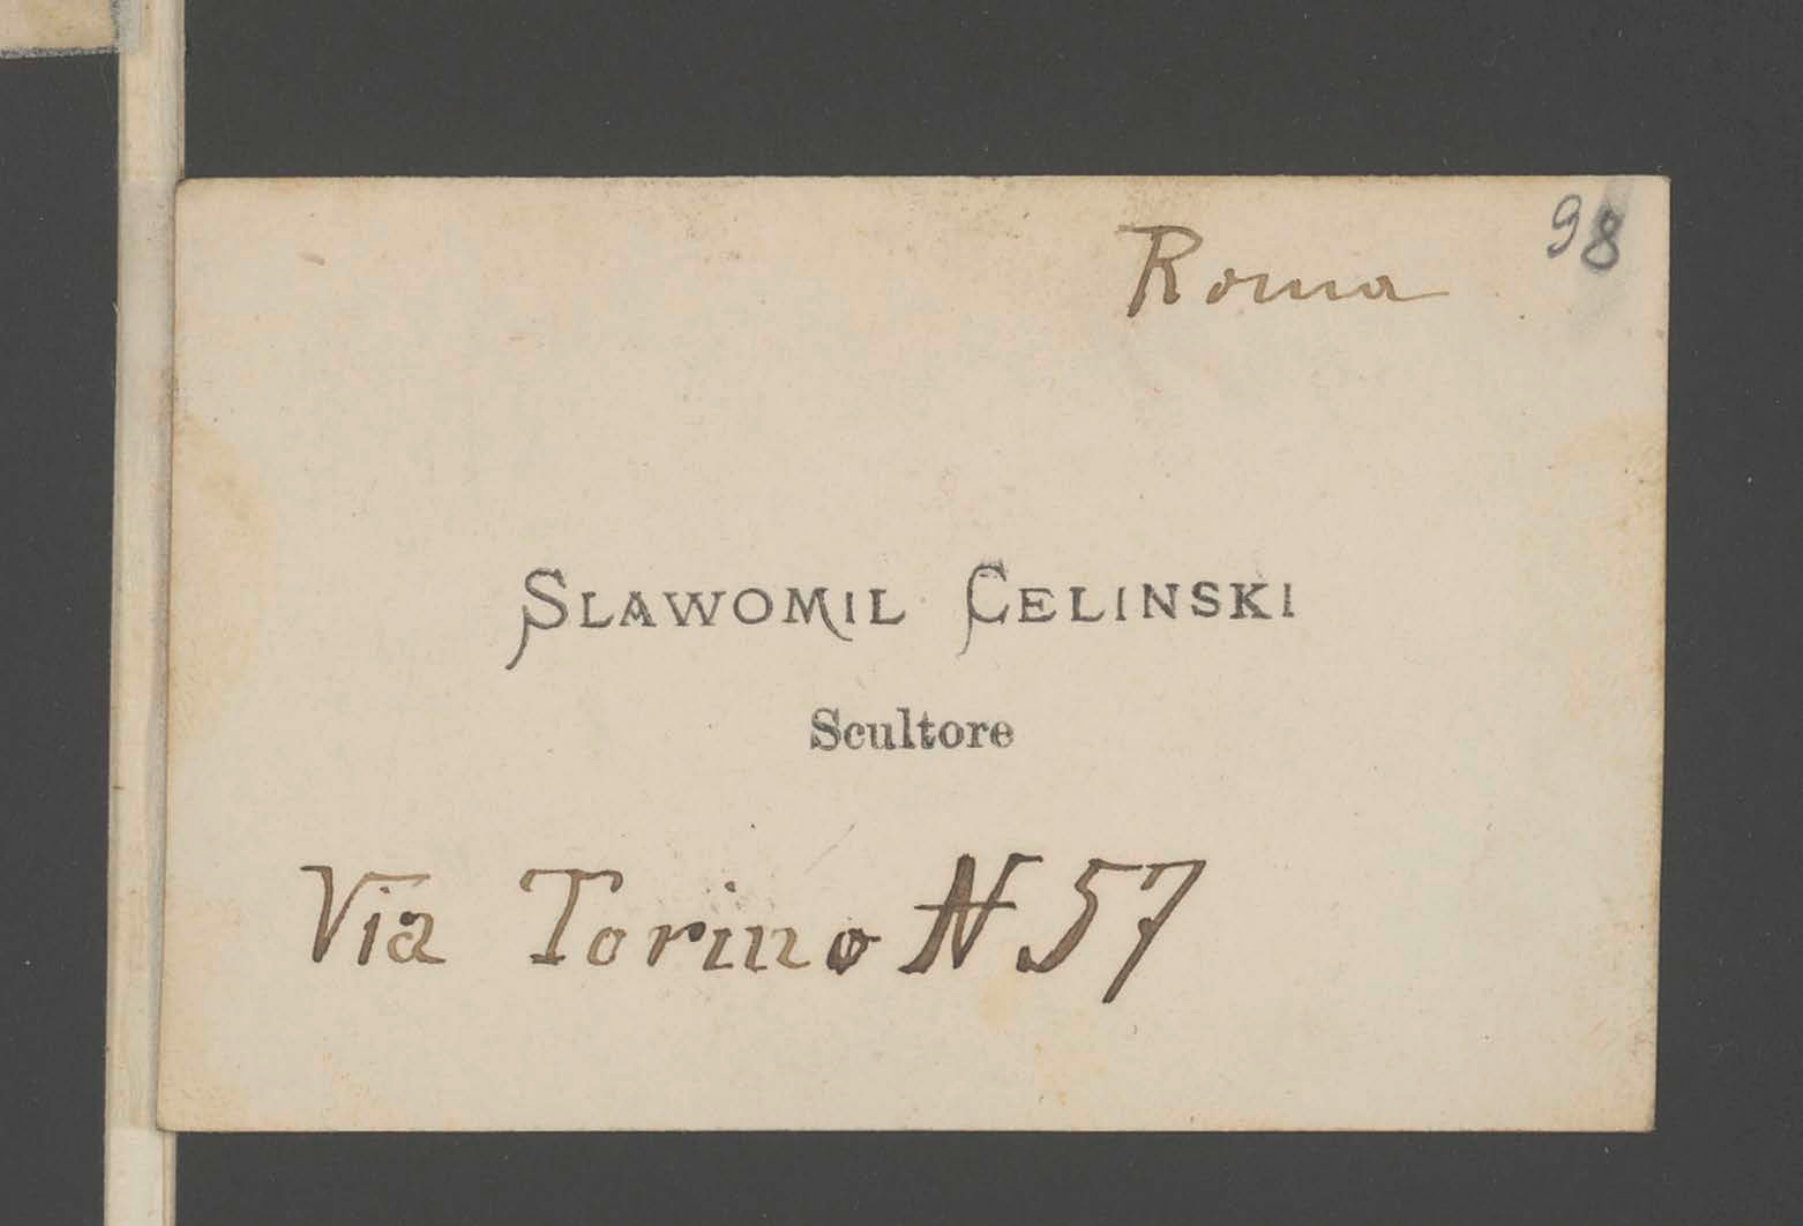 98
Roma
SLAWOMIL CELINSKI
Scultore
Via Torino N 57